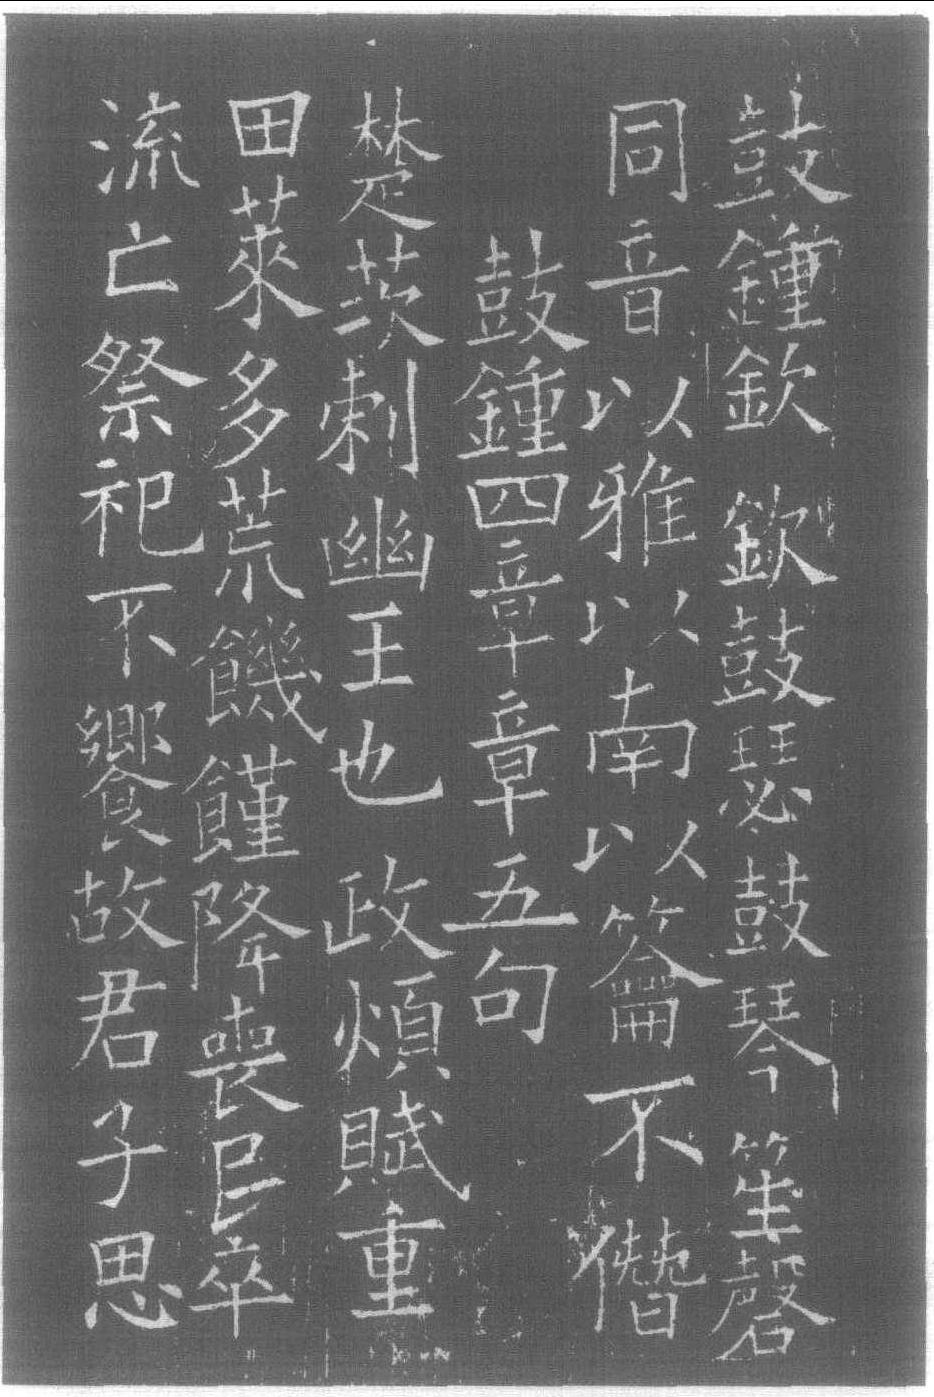 鼓鍾欽欽鼓瑟鼓琴笙磬
同音以雅以南以籥不僭
鼓鍾四章章五句
楚茨刺幽王也政煩賦重
田萊多荒饑饉降喪民卒
流亡祭祀不饗故君子思